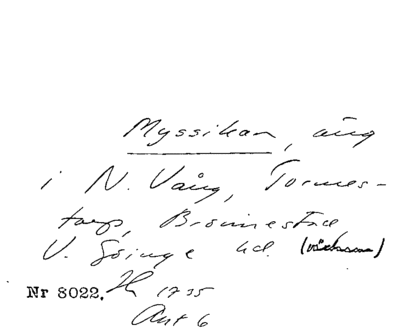 Myssikan, äng
i N. Vång, Tormes-
torp, Brönnestad
V. Göinge hd.
Nr 8022. 1735
Akt 6